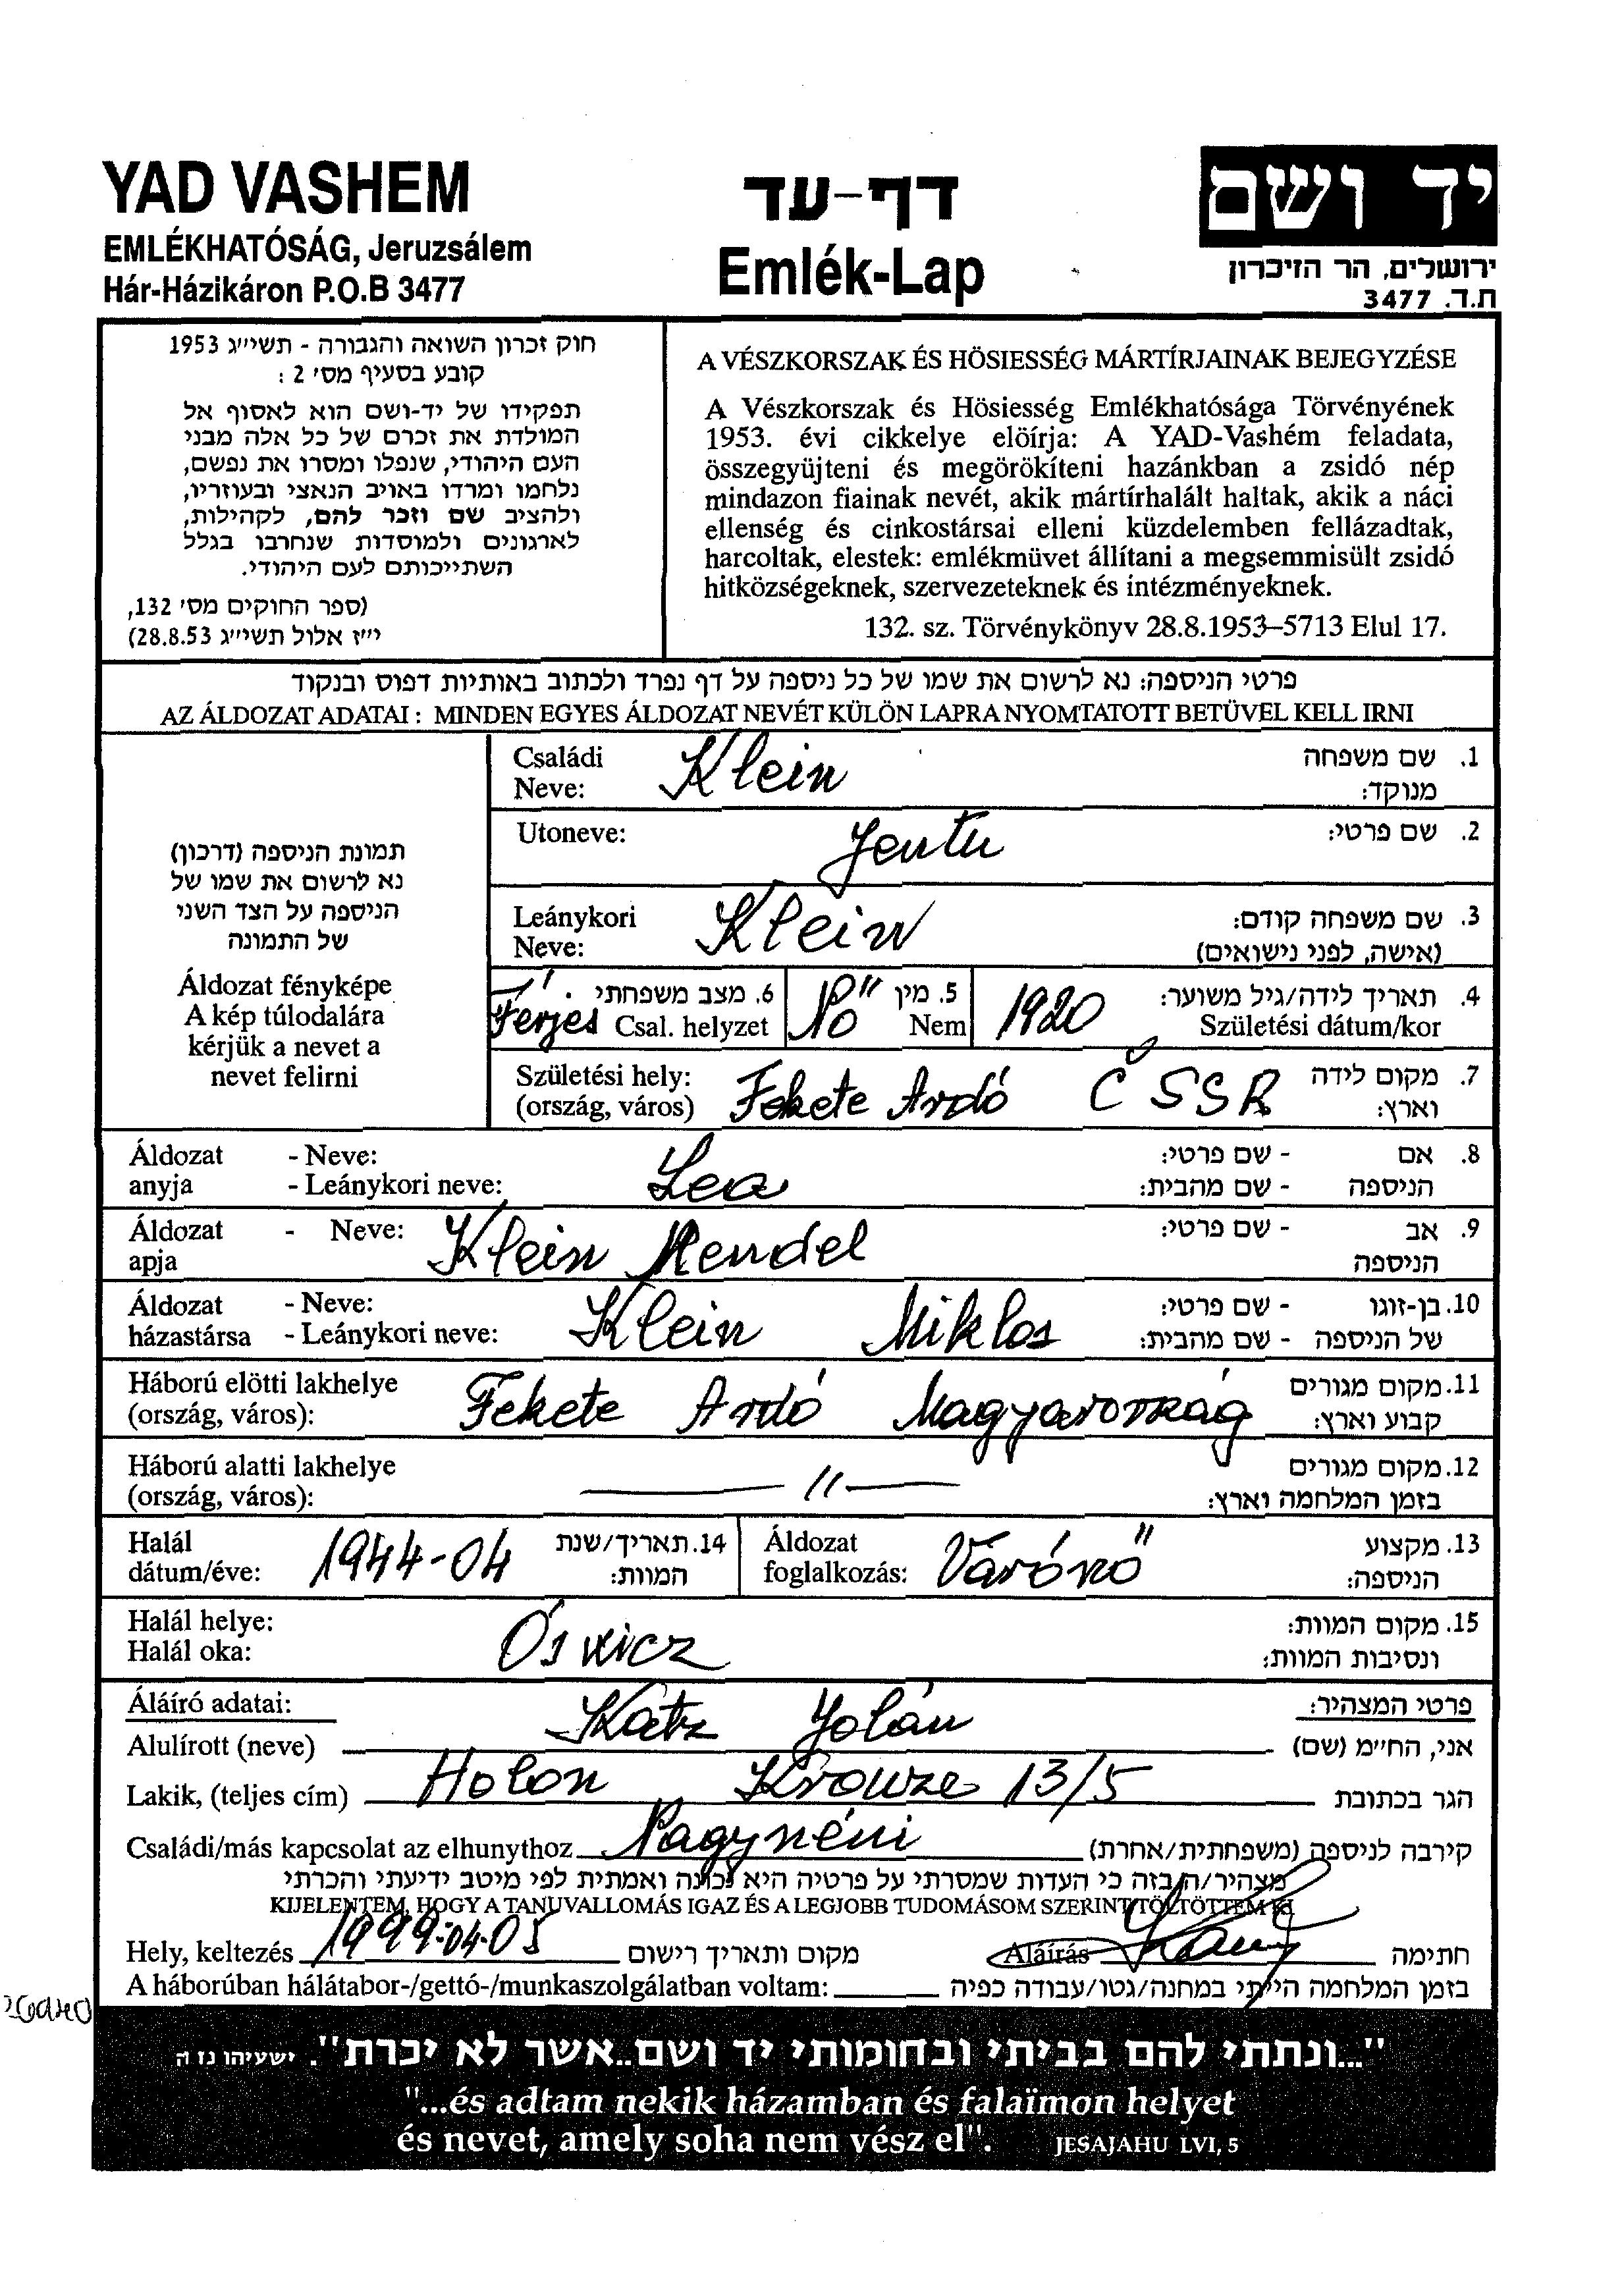 YAD VASHEM
EMLÉKHATÓSÁG, Jeruzsálem
Hár-Házikáron P.O.B 3477
דף-עד
Emlék-Lap
יד ושם
ירושלים, הר הזיכרון
ת.ד. 3477
חוק זכרון השואה והגבורה - תשי״ג 1953
קובע בסעיף מס׳ 2 :
תפקידו של יד-ושם הוא לאסוף אל
המולדת את זכרם של כל אלה מבני
העם היהודי, שנפלו ומסרו את נפשם,
נלחמו ומרדו באויב הנאצי ובעוזריו,
ולהציב שם וזכר להם, לקהילות,
לארגונים ולמוסדות שנחרבו בגלל
השתייכותם לעם היהודי.
(ספר החוקים מס׳ 132,
י״ז אלול תשי״ג 28.8.53)
A VÉSZKORSZAK ÉS HÖSIESSÉG MÁRTÍRJAINAK BEJEGYZÉSE
A Vészkorszak és Hösiesség Emlékhatósága Törvényének
1953. évi cikkelye elöírja: A YAD-Vashém feladata,
összegyüjteni és megörökíteni hazánkban a zsidó nép
mindazon fiainak nevét, akik mártírhalált haltak, akik a náci
ellenség és cinkostársai elleni küzdelemben fellázadtak,
harcoltak, elestek: emlékmüvet állítani a megsemmisült zsidó
hitközségeknek, szervezeteknek és intézményeknek.
132. sz. Törvénykönyv 28.8.1953–5713 Elul 17.
פרטי הניספה: נא לרשום את שמו של כל ניספה על דף נפרד ולכתוב באותיות דפוס ובנקוד
AZ ÁLDOZAT ADATAI : MINDEN EGYES ÁLDOZAT NEVÉT KÜLÖN LAPRA NYOMTATOTT BETÜVEL KELL IRNI
תמונת הניספה (דרכון)
נא לרשום את שמו של
הניספה על הצד השני
של התמונה
Áldozat fényképe
A kép túlodalára
kérjük a nevet a
nevet felirni
Családi Klein 1. שם משפחה
Neve: מנוקד:
Utoneve: Jentu 2. שם פרטי:
Leánykori Klein 3. שם משפחה קודם:
Neve: (אישה, לפני נישואים)
Férjes 6. מצב משפחתי Nő 5. מין 1920 4. תאריך לידה/גיל משוער:
Csal. helyzet Nem Születési dátum/kor
Születési hely: Fekete Ardó ČSSR 7. מקום לידה
(ország, város) וארץ:
Áldozat - Neve: Lea - שם פרטי: 8. אם
anyja - Leánykori neve: - שם מהבית: הניספה
Áldozat - Neve: Klein Mendel - שם פרטי: 9. אב
apja הניספה
Áldozat - Neve: Klein Miklos - שם פרטי: 10. בן-זוגו
házastársa - Leánykori neve: - שם מהבית: של הניספה
Háború elötti lakhelye Fekete Ardó Magyarország 11. מקום מגורים
(ország, város): קבוע וארץ:
Háború alatti lakhelye — 〃 — 12. מקום מגורים
(ország, város): בזמן המלחמה וארץ:
Halál 1944-04 14. תאריך/שנת Áldozat Varónő 13. מקצוע
dátum/éve: המוות: foglalkozás: הניספה:
Halál helye: Ósvicz 15. מקום המוות:
Halál oka: ונסיבות המוות:
Áláíró adatai: פרטי המצהיר:
Alulírott (neve) Katz Jolán אני, החי״מ (שם)
Lakik, (teljes cím) Holon Krouze 13/5 הגר בכתובת
Családi/más kapcsolat az elhunythoz Nagynéni קירבה לניספה (משפחתית/אחרת)
מצהיר/ה בזה כי העדות שמסרתי על פרטיה היא נכונה ואמתית לפי מיטב ידיעתי והכרתי
KIJELENTEM, HOGY A TANUVALLOMÁS IGAZ ÉS A LEGJOBB TUDOMÁSOM SZERINT TÖLTÖTTEM KI
Hely, keltezés 1999-04-05 מקום ותאריך רישום Aláírás חתימה
A háborúban hálátabor-/gettó-/munkaszolgálatban voltam: בזמן המלחמה הייתי במחנה/גטו/עבודה כפיה
"...ונתתי להם בביתי ובחומותי יד ושם..אשר לא יכרת". ישעיהו נז ה
"...és adtam nekik házamban és falaïmon helyet
és nevet, amely soha nem vész el". JESAJAHU LVI, 5